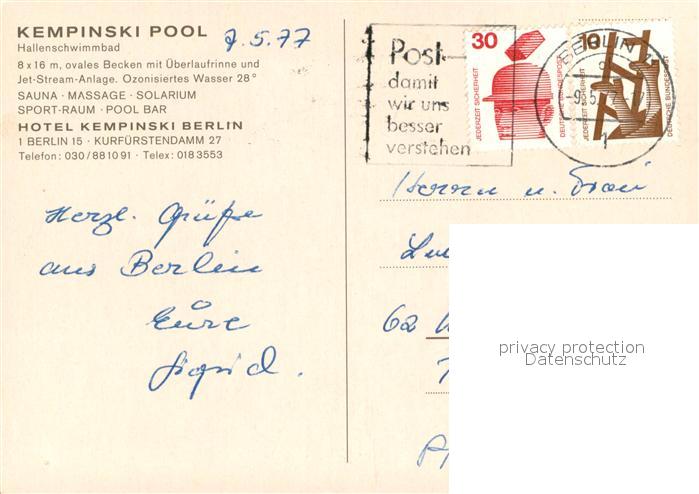 KEMPINSKI POOL
Hallenschwimmbad
8 x 16 m, ovales Becken mit Überlaufrinne und
Jet-Stream-Anlage. Ozonisiertes Wasser 28°
SAUNA · MASSAGE · SOLARIUM
SPORT-RAUM · POOL BAR
HOTEL KEMPINSKI BERLIN
1 BERLIN 15 · KURFÜRSTENDAMM 27
Telefon: 030/881091 · Telex: 0183553
7.5.77
Herzl. Grüße
aus Berlin
Eure
Sigrid.
Post-
damit
wir uns
besser
verstehen
30
JEDERZEIT SICHERHEIT
DEUTSCHE BUNDESPOST
10
JEDERZEIT SICHERHEIT
DEUTSCHE BUNDESPOST
BERLIN
1
Herrn u. Frau
62
privacy protection
Datenschutz